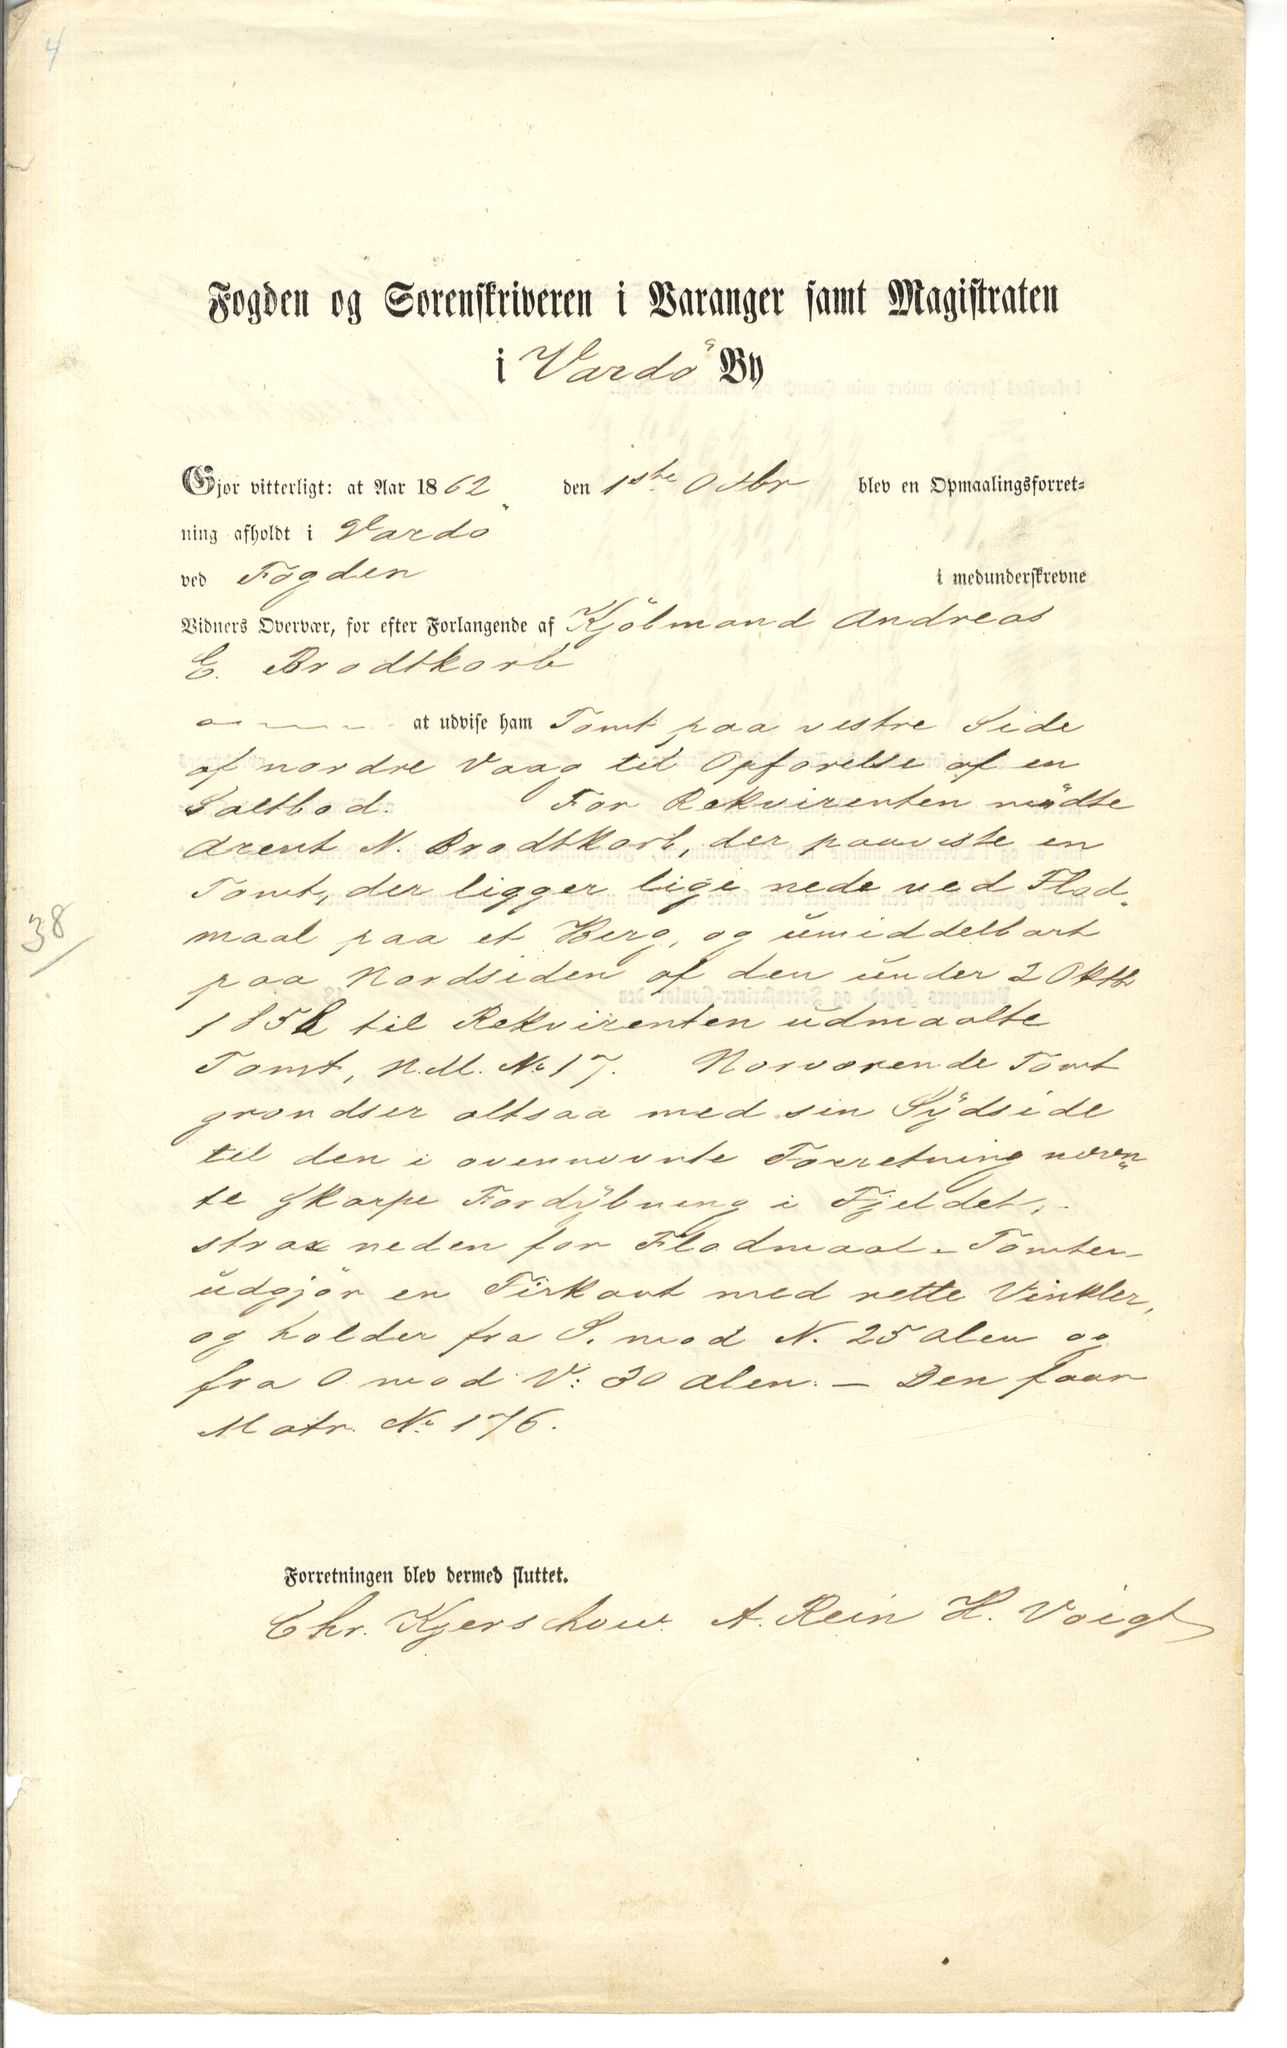 4
Fogden og Sorenskriveren i Varanger samt Magistraten
i Vardö By
Gjør vitterligt: at Aar 1862 den 1ste Oktbr blev en Opmaalingsforret-
ning afholdt i Vardö
ved Fogden i medunderskrevne
Vidners Overvær, for efter Forlangende af Kjöbmand Andreas
E. Brodtkorb
at udvise ham Tomt paa vestre Side
af nordre Vaag til Opførelse af en
Saltbod. For Rekvirenten mödte
Arent N. Brodtkorb, der paaviste en
Tomt, der ligger lige nede ved Flod-
maal paa et Berg, og umiddelbart
38
paa Nordsiden af den under 2 Oktbr
1858 til Rekvirenten udmaalte
Tomt, N.M. No 17. Nærværende Tomt
grændser altsaa med sin Sydside
til den i ovennævnte Forretning nævn-
te skarpe Fordybning i Fjeldet,
strax neden for Flodmaal - Tomten
udgjör en Firkant med rette Vinkler,
og holder fra S. mod N. 25 Alen og
fra O mod V: 30 Alen. - Den faar
Matr. No 176.
Forretningen blev dermed sluttet.
Chr. Kjerschow A. Rein H. Voigt